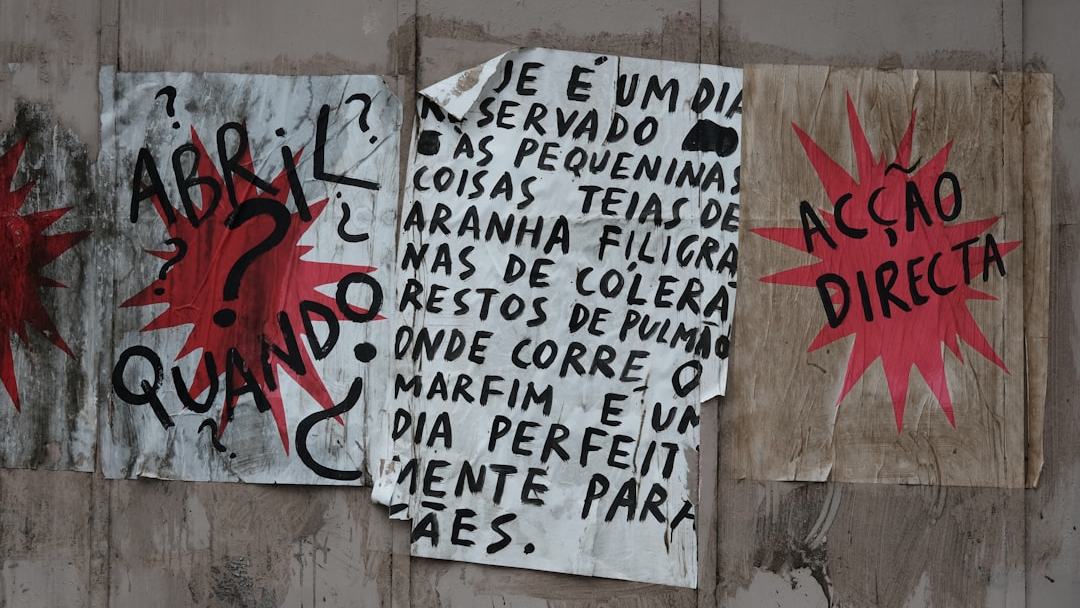 ABRIL
QUANDO
JE É UM DIA
RESERVADO
AS PEQUENINAS
COISAS TEIAS DE
ARANHA FILIGRA
NAS DE CÓLERA
RESTOS DE PULMÃO
ONDE CORRE O
MARFIM E UM
DIA PERFEIT
MENTE PARA
ÃES.
ACÇÃO
DIRECTA